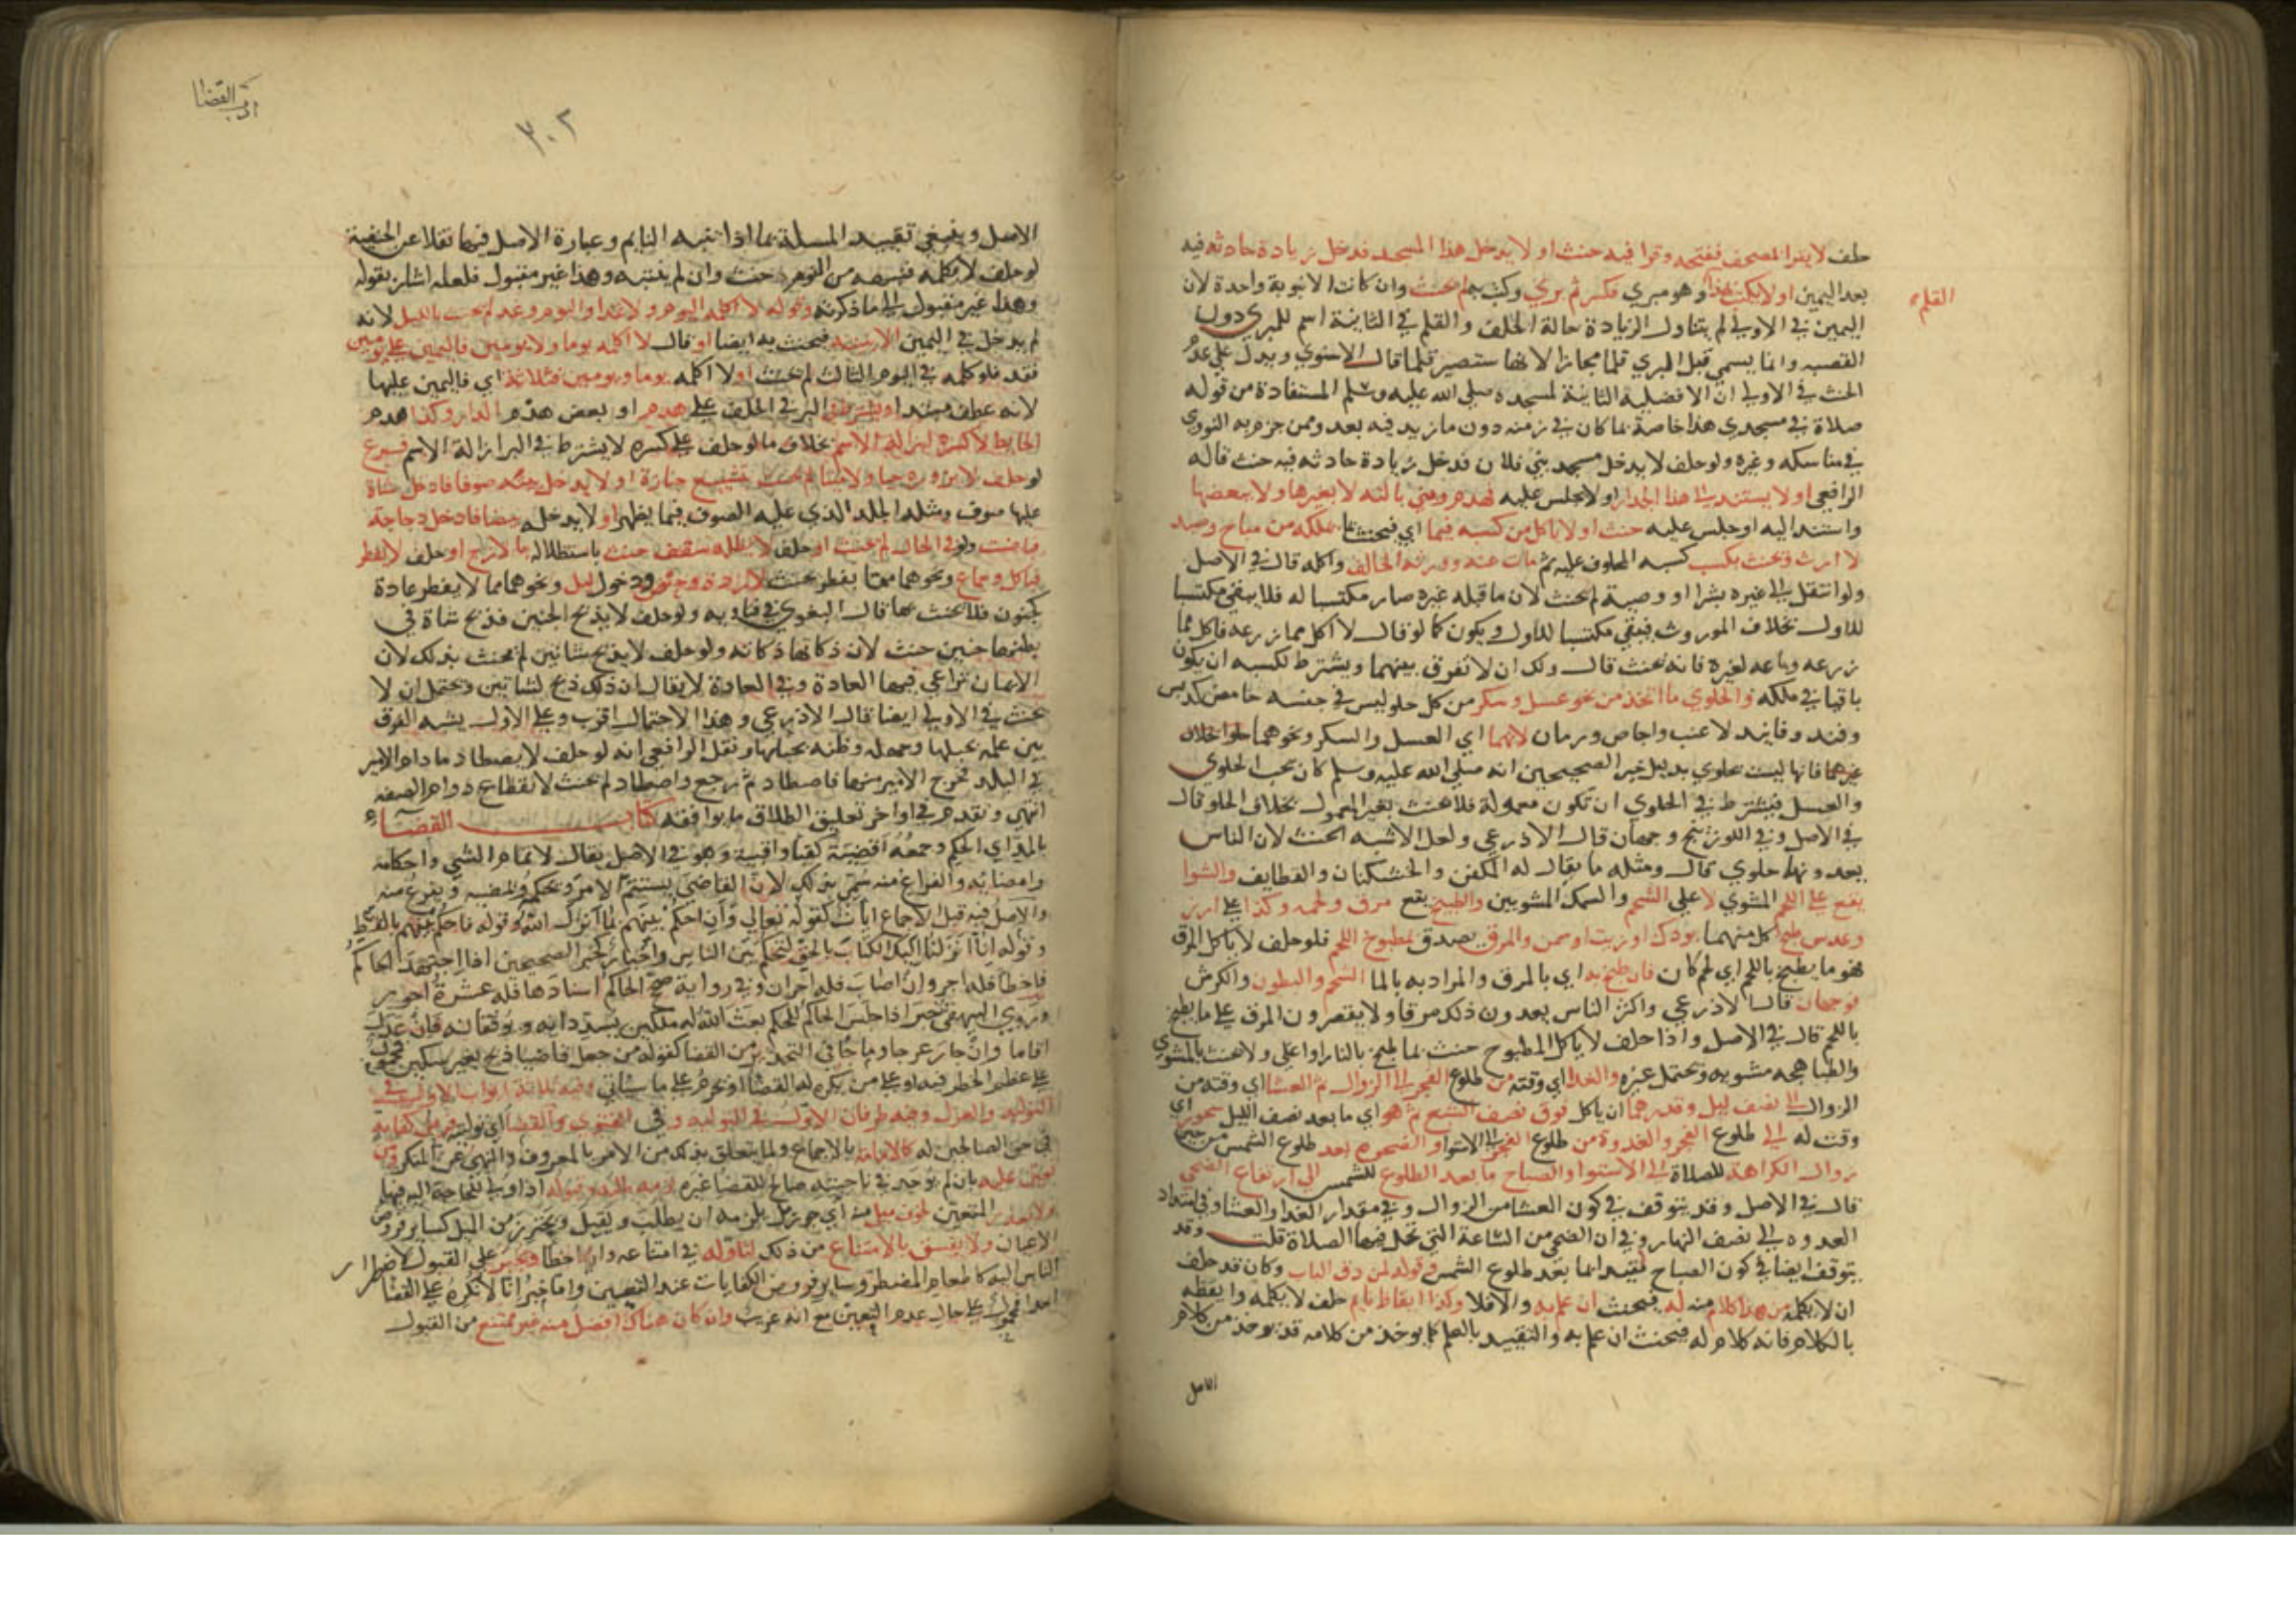 حلف لا يقرا المصحف ففتحه وقرا فيه حنث او لا يدخل هذا المسجد فدخل زيادة حادثه فيه
بعد اليمين او لا يكتب بهذا القلم وهو مبري فكسر ثم بري وكتب به لم يحنث وان كانت الانبوبة واحدة لان
اليمين في الاولي لم يتناول الزيادة حالة الحلف والقلم في الثانية اسم للمبري دون
القصبه وانما يسمي قبل البري قلما مجازا لانها ستصير قلما قال الاسنوي ويدل علي عدم
الحنث في الاولي ان الافضلية الثابتة لمسجده صلي الله عليه وسلم المستفادة من قوله
صلاة في مسجدي هذا خاصة بما كان في زمنه دون ما زيد فيه بعد وممن جزم به النووي
في مناسكه وغيره ولو حلف لا يدخل مسجد بني فلان فدخل زيادة حادثه فيه حنث قاله
الرافعي او لا يستند الي هذا الجدار او لا يجلس عليه فهدم وبني بالته لا بغيرها ولا ببعضها
واستند اليه او جلس عليه حنث او لا ياكل من كسبه فيما اي فيحنث بما تملكه من مباح وصيد
لا ارث ويحنث بكسب كسبه المحلوف عليه ثم مات عنه وورثه الحالف واكله قال في الاصل
ولو انتقل الي غيره بشرا او وصية لم يحنث لان ما قبله غيره صار مكتسبا له فلا يبقي مكتسبا
للاول بخلاف الموروث فيبقي مكتسبا للاول ويكون كما لو قال لا اكل مما زرعه فاكل مما
زرعه وباعه لغيره فانه يحنث قال ولك ان لا تفرق بينهما ويشترط لكسبه ان يكون
باقيا في ملكه والحلوي ما اتخذ من نحو عسل وسكر من كل حلو ليس في جنسه حامض كدبس
وقند وفانيد لا عنب واجاص ورمان لانهما اي العسل والسكر ونحوهما حلوا بخلاف
غيرهما فانها ليست بحلوي بدليل خبر الصحيحين انه صلي الله عليه وسلم كان يحب الحلوي
والعسل فيشترط في الحلوي ان تكون معمولة فلا يحنث بغير المعمول بخلاف الحلو قال
في الاصل وفي اللوزينج وجهان قال الاذرعي ولعل الاشبه الحنث لان الناس
يعدونها حلوي قال ومثله ما يقال له المكفن والخشكنان والقطايف والشوا
يقع علي اللحم المشوي لا علي الشحم والسمك المشويين والطبيخ يقع مرق ولحمه وكذا علي ارز
وعدس طبخ كل منهما بودك او زيت او سمن والمرق يصدق بمطبوخ اللحم فلو حلف لا ياكل المرق
فهو ما يطبخ باللحم اي لحم كان فان طبخ بد اي بالمرق والمراد به بالما الشحم والبطون والكرش
فوجهان قال الاذرعي واكثر الناس يعدون ذلك مرقا ولا يقصرون المرق علي ما يطبخ
باللحم قال في الاصل واذا حلف لا ياكل المطبوخ حنث بما طبخ بالنار او اغلي ولا يحنث بالمشوي
والطباهجه مشويه ويحتمل غيره والغدا اي وقته من طلوع الفجر الي الزوال ثم العشا اي وقته من
الزوال الي نصف ليل وقدرهما ان ياكل فوق نصف الشبع ثم هو اي ما بعد نصف الليل سحور اي
وقت له الي طلوع الفجر والغدوة من طلوع الفجر الي الاستوا والضحوه بعد طلوع الشمس من حين
زوال الكراهة للصلاة الي الاستوا والصباح ما بعد الطلوع للشمس الي ارتفاع الضحي
قال في الاصل وقد يتوقف في كون العشا من الزوال وفي مقدار الغدا والعشا وفي امتداد
الغدوه الي نصف النهار وفي ان الضحي من الساعة التي تحل فيها الصلاة قلت وقد
يتوقف ايضا في كون الصباح لمقيد انما بعد طلوع الشمس وقوله لمن دق الباب وكان قد حلف
ان لا يكلمه من هذا كلام منه له فيحنث ان علم به والا فلا وكذا ايقاظ نايم حلف لا يكلمه وايقظه
بالكلام فانه كلام له فيحنث ان علم به والتقييد بالعلم كما يوخذ من كلامه قد يوخذ من كلام
الاصل
القلم
ادب القضا
٣٠٢
الاصل وينبغي تقييد المسلة بما اذا انتبه النايم وعبارة الاصل فيها نقلا عن الحنفية
لو حلف لا يكلمه فنبهه من النوم حنث وان لم ينتبه وهذا غير مقبول فلعله اشار بقوله
وهذا غير مقبول الي ما ذكرته وقوله لا اكلمه اليوم ولا غدا او اليوم وغد لم يحنث بالليل لانه
لم يدخل في اليمين فيحنث به ايضا او قال لا اكلمه يوما ولا يومين فاليمين علي يومين
فقد فلو كلمه في اليوم الثالث لم يحنث او لا اكلمه يوما ويومين فثلاثة اي فاليمين عليها
لانه عطف مبتدا ويشترط في البر في الحلف علي هدم او بعض هدم الدار وكذا هدم
الحايط لا كسره ازالة الاسم بخلاف ما لو حلف علي كسره لا يشترط في البر ازالة الاسم فرع
لو حلف لا يزوره حيا ولا ميتا لم يحنث بتشييع جنازة او لا يدخل بيته صوفا فادخل شاة
عليها صوف ومثله الجلد الذي عليه الصوف فيما يظهر او لا يدخله بيضا فادخل دجاجة
فباضت ولو في الحال لم يحنث او حلف لا يظله سقف حنث باستظلاله بالازج او حلف لا يفطر
فباكل وجماع ونحوهما مما يفطر يحنث لا بردة وحيض ودخول ليل ونحوهما مما لا يفطر عادة
كجنون فلا يحنث بها قال البغوي في فتاويه ولو حلف لا يذبح الجنين فذبح شاة في
بطنها جنين حنث لان ذكاتها ذكاته ولو حلف لا يذبح شاتين لم يحنث بذلك لان
الايمان تراعي فيها العادة وفي العادة لا يقال ان ذلك ذبح لشاتين ويحتمل ان لا
يحنث في الاولي ايضا قال الاذرعي وهذا الاحتمال اقرب وعلي الاول يشبه الفرق
بين علمه بحبلها وجهله وظنه بحيالها ونقل الرافعي انه لو حلف لا يصطاد ما دام الامير
في البلد فخرج الامير منها فاصطاد ثم رجع واصطاد لم يحنث لانقطاع دوام الصفه
انتهي وتقدم في اواخر تعليق الطلاق ما يوافقه كتاب القضاء
بالمد اي الحكم وجمعه اقضية كقبا واقبية وهو في الاصل يقال لاتمام الشي واحكامه
وامضائه والفراغ منه سمي بذلك لان القاضي يستتم الامر ويحكمه ويمضيه ويفرغ منه
والاصل فيه قبل الاجماع ايات كقوله تعالي وان احكم بينهم بما انزل الله وقوله فاحكم بينهم بالقسط
وقوله انا انزلنا اليك الكتاب بالحق لتحكم بين الناس واخبار كخبر الصحيحين اذا اجتهد الحاكم
فاخطا فله اجر وان اصاب فله اجران وفي رواية صحح الحاكم اسنادها فله عشرة اجور
وروي البيهقي خبر اذا جلس الحاكم للحكم بعث الله له ملكين يسددانه ويوفقانه فان عدل
اقاما وان جار عرجا وما جا في التحذير من القضا كقوله من جعل قاضيا ذبح بغير سكين محمول
علي عظم الخطر فيه او علي من يكره له القضا او يحرم علي ما سياتي وفيه ثلاثة ابواب الاول في
التوليه والعزل وفيه طرفان الاول في التوليه وفي الفتوي والقضا اي توليته فرض كفاية
في حق الصالحين له كالامامه بالاجماع ولما يتعلق بذلك من الامر بالمعروف والنهي عن المنكر ومن
تعين عليه بان لم يوجد في ناحيته صالح للقضا غيره لزمه طلبه وقبوله اذا ولي للحاجة اليه فيها
ولا يعذر المتعين لخوف ميل منه اي جور بل يلزمه ان يطلب ويقبل ويحترز من الميل كساير فروض
الاعيان ولا يفسق بالامتناع من ذلك لتاوله في امتناعه وان اخطا ويجبر علي القبول لاضطرار
الناس اليه كاطعام المضطر وساير فروض الكفايات عند التعيين واما خبر انا لا نكره علي القضا
احدا فمحمول علي حال عدم التعين مع انه غريب وان كان هناك افضل منه غير ممتنع من القبول